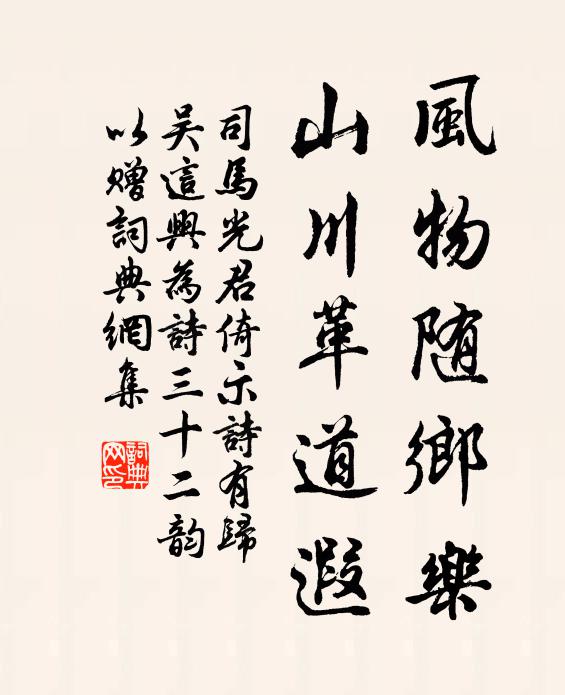 風物随鄉樂
山川革道遐
司馬光君倚示詩有歸
吴這興為詩三十二韵
以贈詞典網集
詞典网印